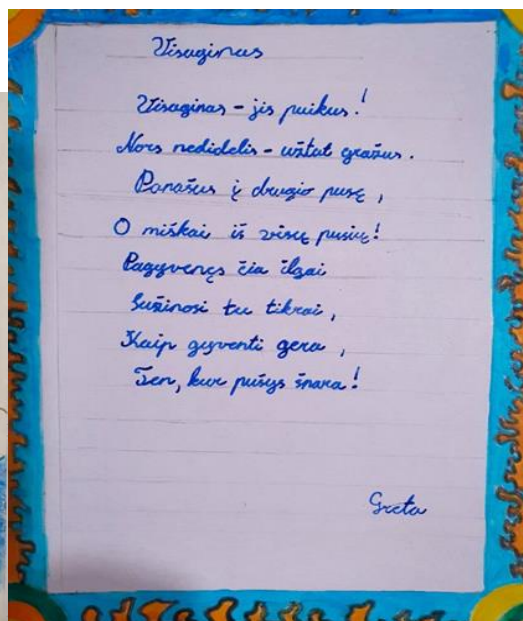 Visaginas
Visaginas – jis puikus!
Nors nedidelis – užtat gražus.
Panašus į drugio pusę,
O miškai iš visų pusių!
Pagyvenęs čia ilgai
Sužinosi tu tikrai,
Kaip gyventi gera,
Ten, kur pušys šnara!
Greta